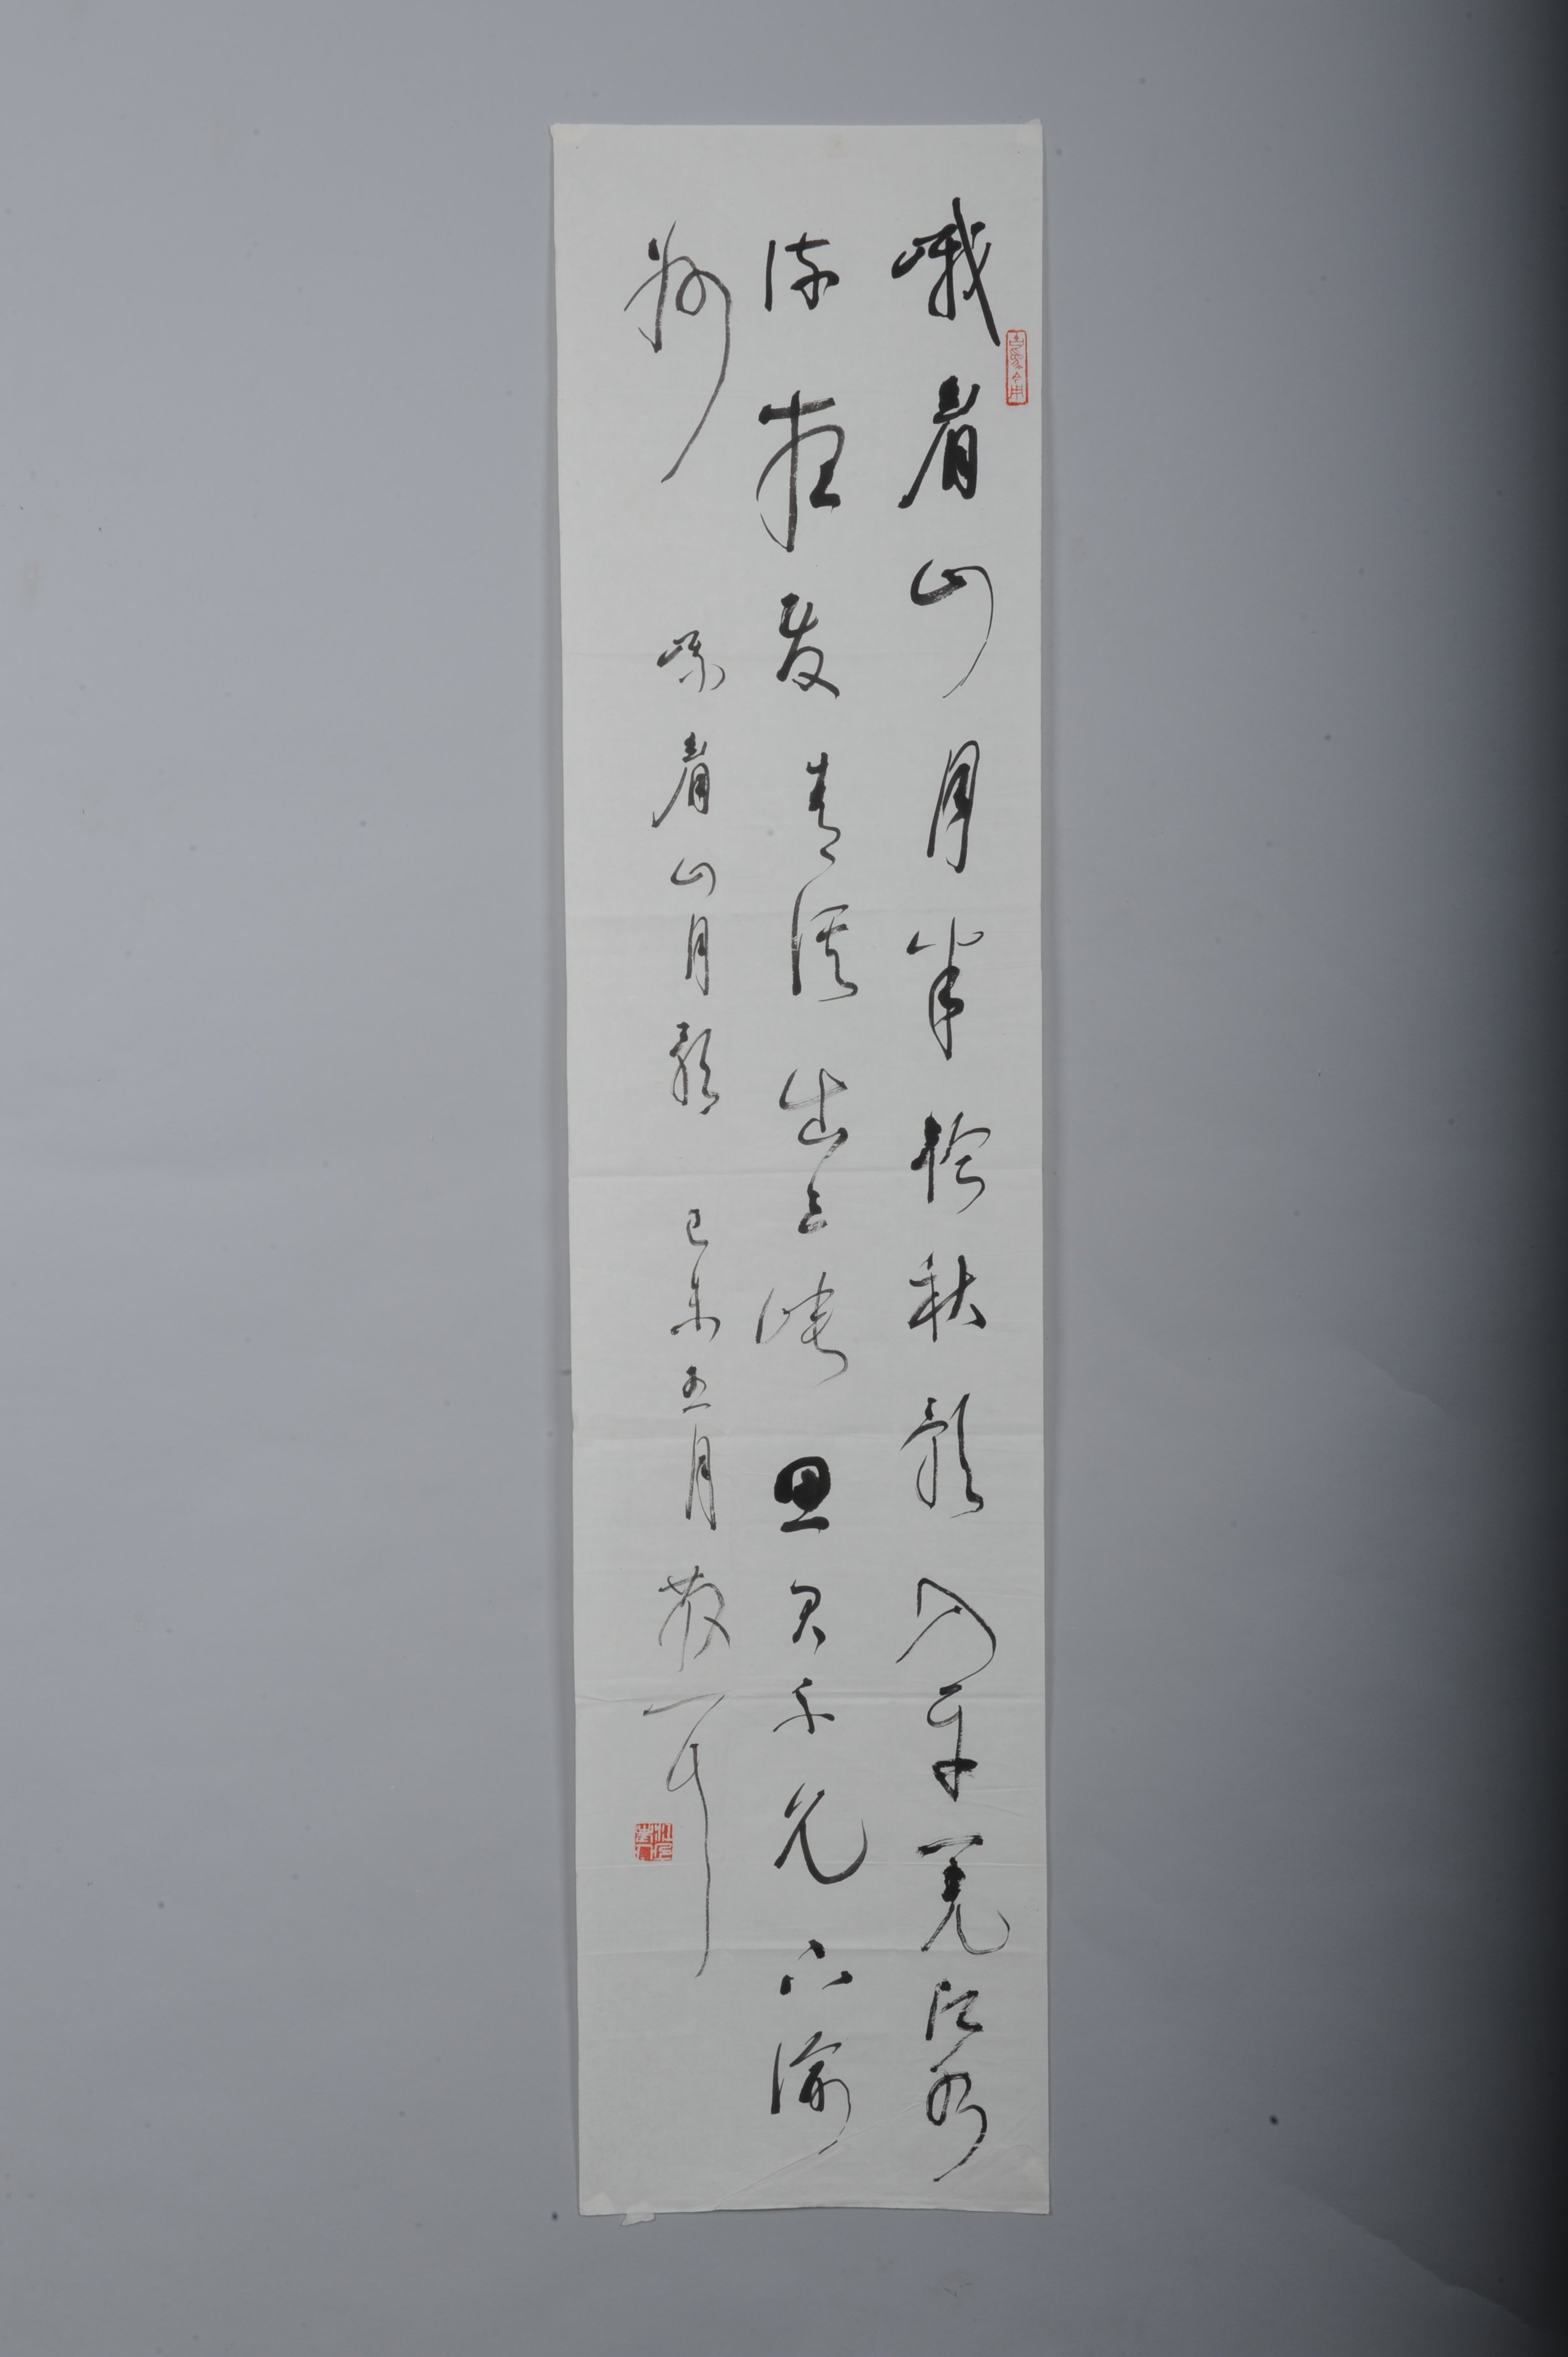 峨眉山月半轮秋影入平羌江水
流夜发清溪向三峡思君不见下渝
州
峨眉山月歌 己未五月 散耳